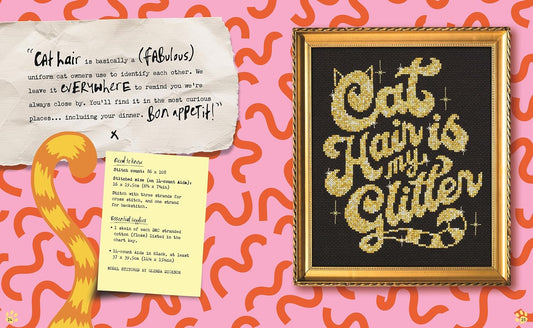 "Cat hair is basically a (fABulous)
uniform cat owners use to identify each other. We
leave it eVERYwHeRe to remind you we're
always close by. You'll find it in the most curious
places... including your dinner. Bon appetit!"
x
Need to know
Stitch count: 86 x 108
Stitched size (on 14-count Aida):
Stitch with three strands for
cross stitch, and one strand
for backstitch.
Essential supplies
• 1 skein of each DMC stranded
cotton (floss) listed in the
chart key.
• 14-count Aida in black, at least
MODEL STITCHED BY
Cat
Hair is
my
Glitter